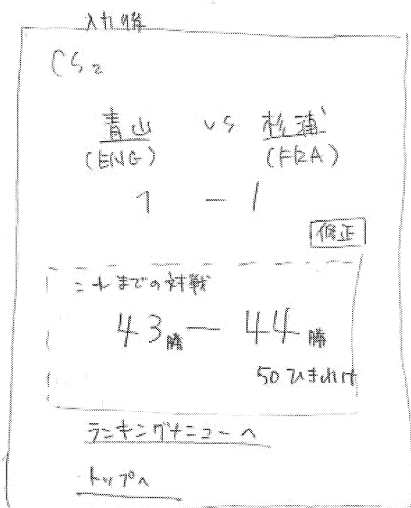 入力後
CS2
青山 vs 杉浦
(ENG) (FRA)
1 - 1
修正
これまでの対戦
43勝 - 44勝
50ひきわけ
ランキングメニューへ
トップへ